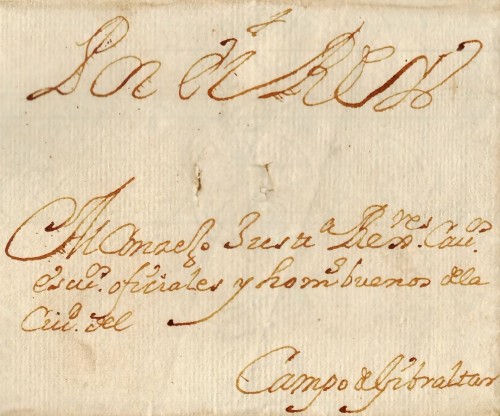 Por el Rey
Al Concejo Justª Rexres. Cauºs
escuºs. ofiçiales y homsbuenos dela
Ciud. del
Campo de Gibraltar